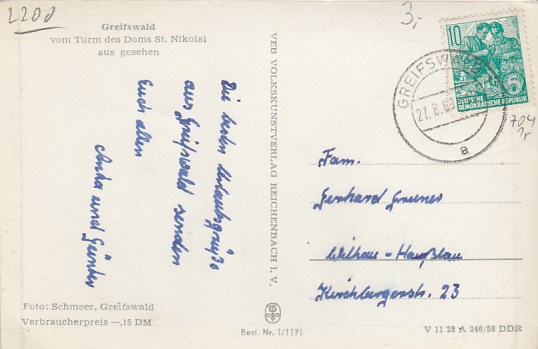 2200
Greifswald
vom Turm des Doms St. Nikolai
aus gesehen
Die besten Urlaubsgrüße
aus Greifswald senden
Euch allen
Anka und Günter
Foto: Schmeer, Greifswald
Verbraucherpreis –,15 DM
VEB VOLKSKUNSTVERLAG REICHENBACH I. V.
Best. Nr. 1/1171
3,-
10
DEUTSCHE
DEMOKRATISCHE REPUBLIK
GREIFSWALD
27.8.60
a
704
Fam.
Gerhard
Wilkau - Haßlau
Kirchbergerstr. 23
V 11 28 A 246/58 DDR